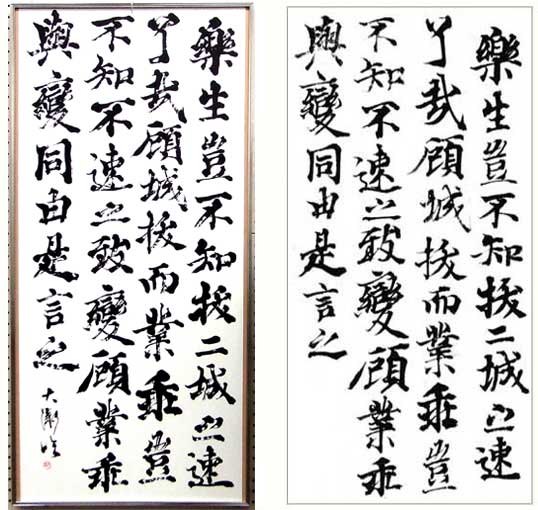 樂生豈不知拔二城之速
了哉顧城拔而業乖豈
不知不速之致變顧業乖
與變同由是言之
樂生豈不知拔二城之速
了哉顧城拔而業乖豈
不知不速之致變顧業乖
與變同由是言之